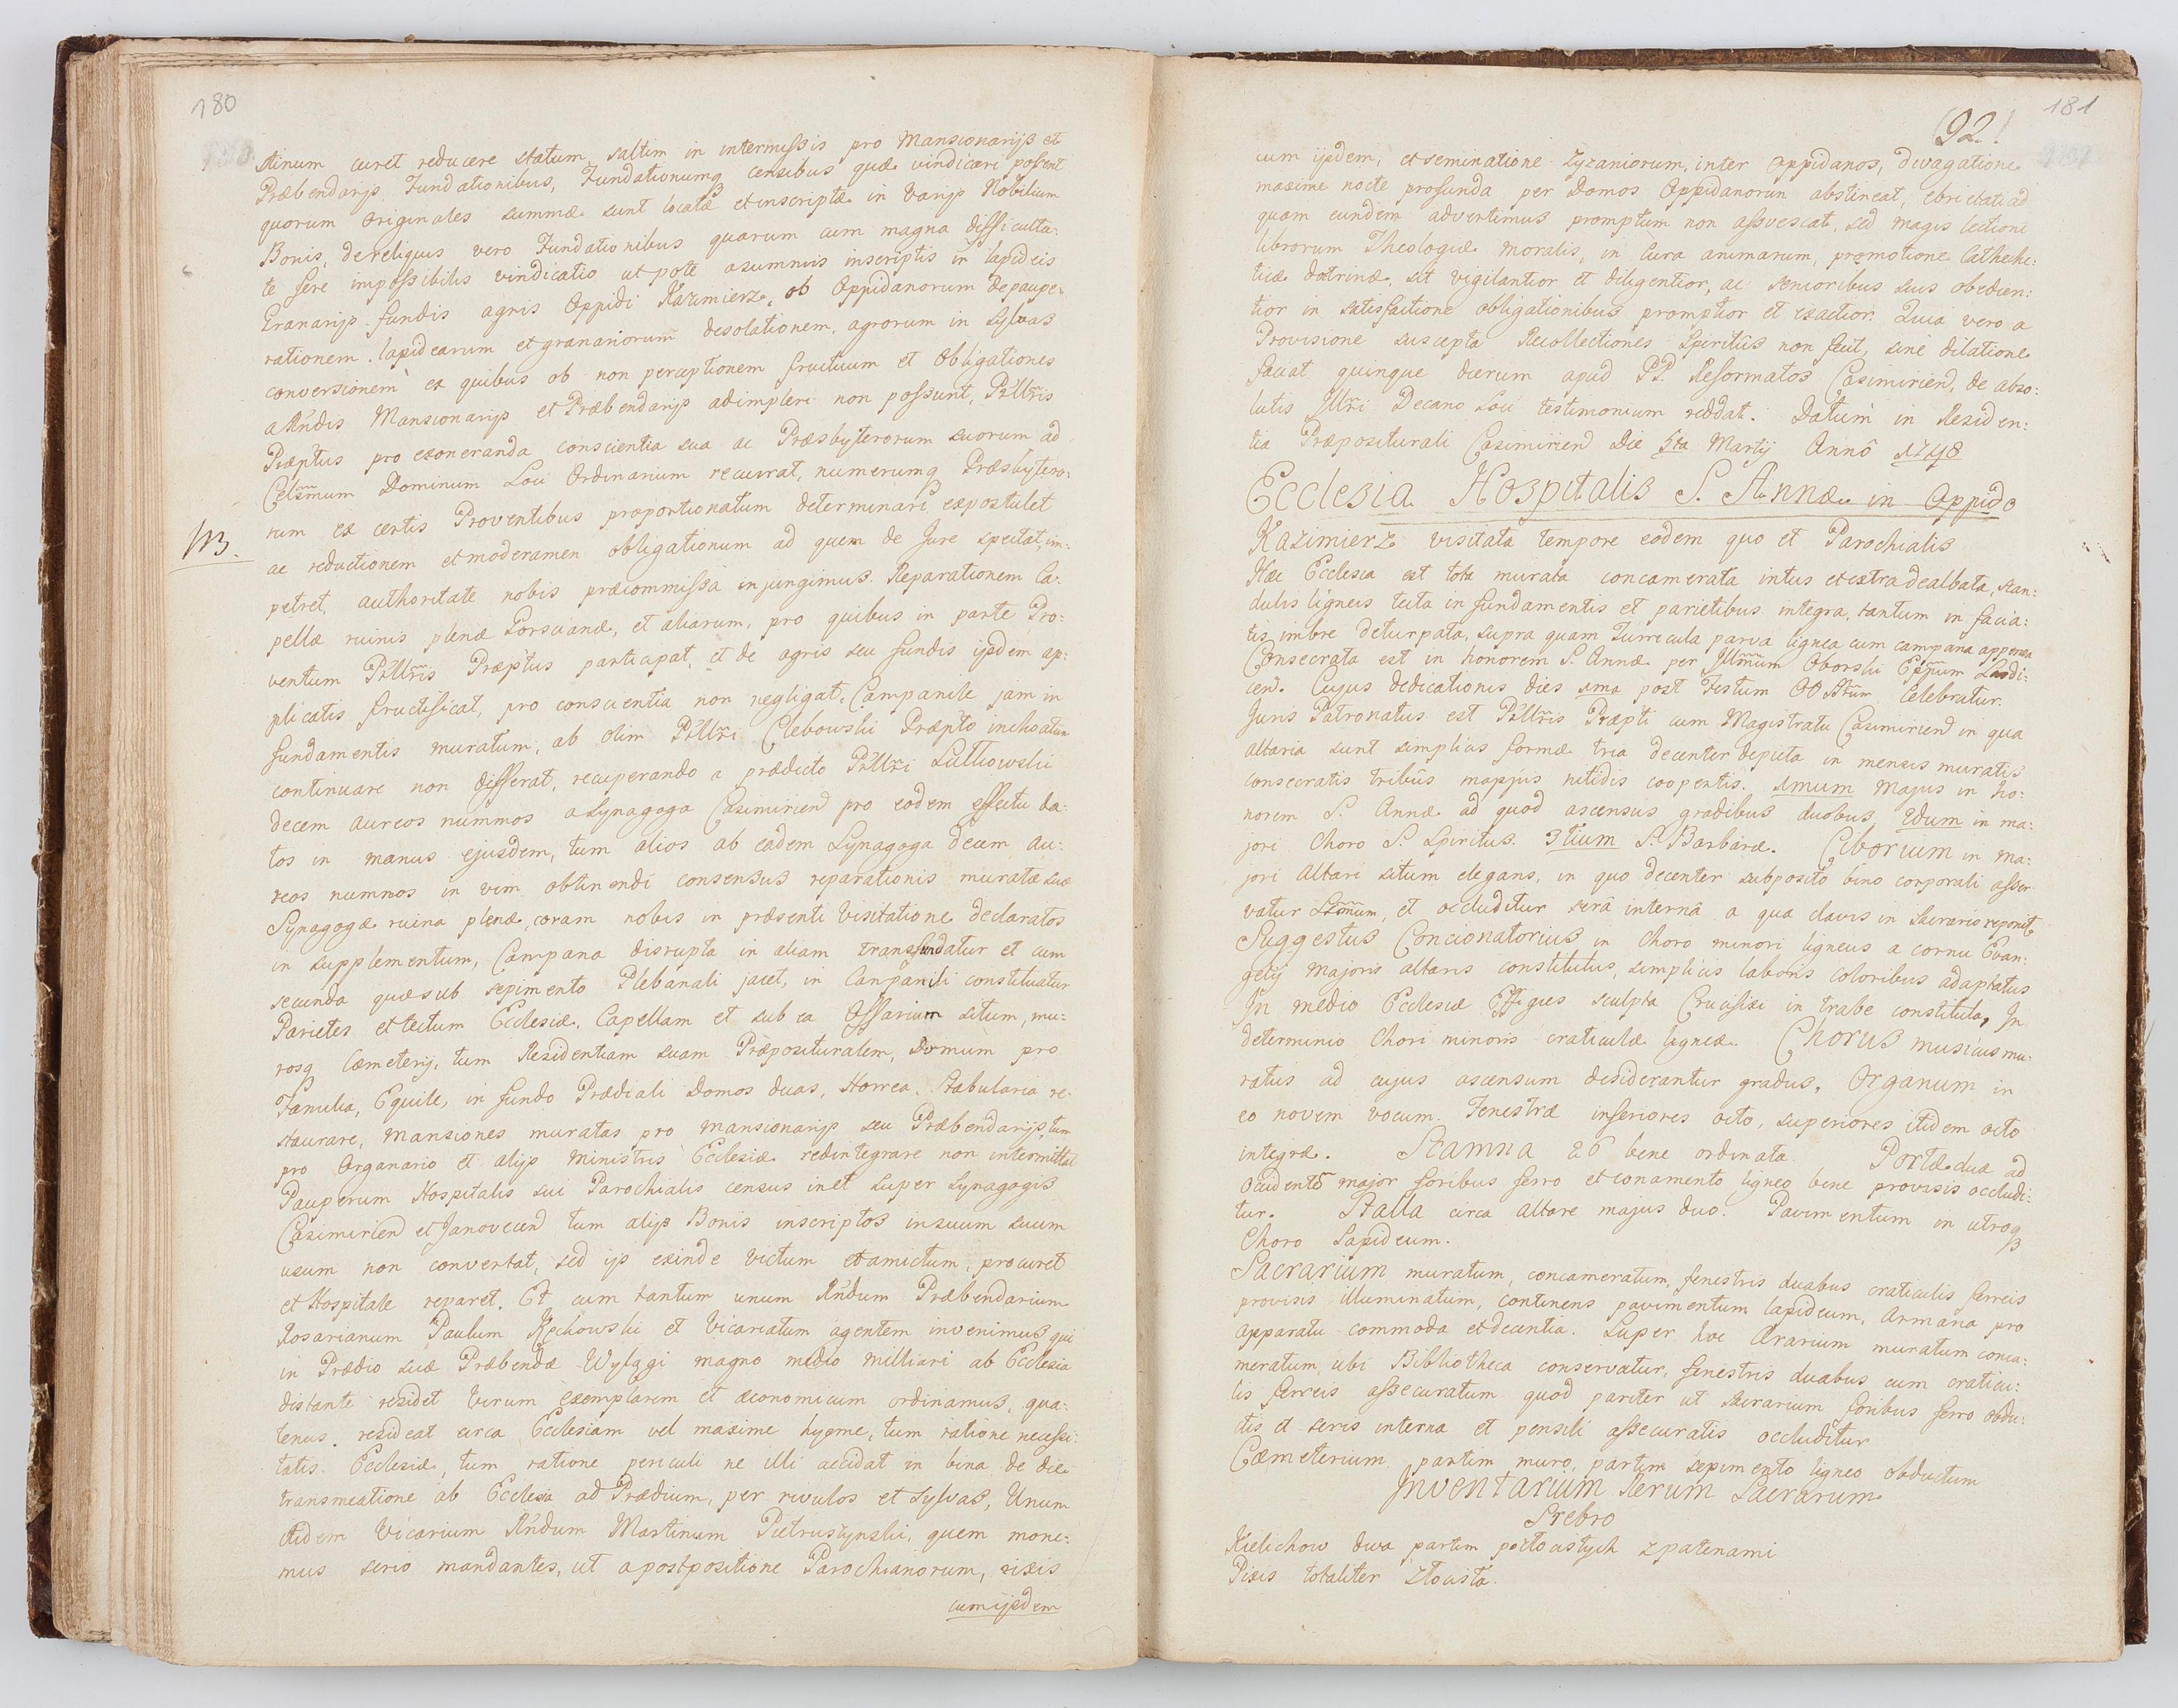 180
stinum curet reducere statum saltim in intermissis pro Mansionarijs et
Præbendarijs Fundationibus, Fundationumq censibus quæ vindicari possent
quorum Originales summæ sunt locatæ et inscriptæ in varijs Nobilium
Bonis, de reliquis vero Fundationibus quarum cum magna difficulta:
te fere impossibilis vindicatio ut pote a summis inscriptis in lapideis
Granarijs fundis agris Oppidi Kazimierz, ob Oppidanorum depaupe:
rationem, lapidearum et granariorum desolationem, agrorum in sylvas
conversionem ex quibus ob non perceptionem fructuum et Obligationes
a Rndis Mansionarijs et Præbendarijs adimpleri non possunt, Pllris
Præptus pro exoneranda conscientia sua ac Præsbyterorum suorum ad
Celsmum Dominum Loci Ordinarium recurrat, numerumq Præsbytero:
rum ex certis Proventibus proportionatum determinari expostulet
ac reductionem et moderamen obligationum ad quem de Jure spectat, im:
NB.
petret, authoritate nobis præcommissa injungimus. Reparationem Ca:
pellæ ruinis plenæ Gorscianæ, et aliarum, pro quibus in parte Pro:
ventum Pllris Præptus participat, et de agris seu fundis ijsdem ap:
plicatis fructificat, pro conscientia non negligat. Campanile jam in
fundamentis muratum, ab olim Pllri Clebowski Præpto inchoatum
continuare non differat, recuperando a prædicto Pllri Luthowski
decem aureos nummos a Synagoga Casimirien pro eodem effectu da:
tos in manus ejusdem, tum alios ab eadem Synagoga decem au:
reos nummos in vim obtinendi consensus reparationis muratæ suæ
Synagogæ ruina plenæ, coram nobis in præsenti Visitatione declaratos
in supplementum, Campana disrupta in aliam transfundatur et cum
secunda quæ sub sepimento Plebanali jacet, in Campanili constituatur
Parietes et tectum Ecclesiæ, Capellam et sub ea Ossarium situm, mu:
rosq Cæmeterij, tum Residentiam suam Præposituralem, Domum pro
Familia, Equile, in fundo Prædiali Domos duas, Horrea, Stabularia re:
staurare, mansiones muratas pro mansionarijs seu Præbendarijs, tum
pro Organario et alijs Ministris Ecclesiæ redintegrare non intermittat
Pauperum Hospitalis sui Parochialis census inet super Synagogis
Casimirien et Janovecen tum alijs Bonis inscriptos in suum suum
usum non convertat, sed ijs exinde victum et amictum, procuret
et Hospitale reparet. Et cum tantum unum Rndum Præbendarium
Rosarianum Paulum Kechowski et Vicariatum agentem invenimus, qui
in Prædio suæ Præbendæ Wylągi magno medio milliari ab Ecclesia
distante residet Virum exemplarem et œconomicum ordinamus, qua:
tenus resideat circa Ecclesiam vel maxime hyeme, tum ratione necessi:
tatis Ecclesiæ, tum ratione periculi ne illi accidat in bina de die
transmeatione ab Ecclesia ad Prædium, per rivulos et sylvas, Unum
itidem Vicarium Rndum Martinum Pietruszynski, quem mone:
mus serio mandantes, ut a postpositione Parochianorum, rixis
cum ijsdem
181
92.
cum ijsdem, et seminatione Zyzaniorum, inter Oppidanos, divagatione
maxime nocte profunda per Domos Oppidanorum abstineat, ebrietati ad
quam eundem advertimus promptum non assvescat, sed magis lectioni
librorum Theologiæ moralis, in Cura animarum, promotione Cathehe:
ticæ dotrinæ, sit vigilantior et diligentior, ac senioribus suis obedien:
tior in satisfactione obligationibus promptior et exactior. Quia vero a
Provisione suscepta Recollectiones Spiritûs non fecit, sine dilatione
faciat quinque dierum apud PP. Reformatos Casimirien, de abso:
lutis Illri Decano Loci testimonium reddat. Datum in Residen:
tia Præposituralî Casimirien Die 5ta Martij Annô 1748
Ecclesia Hospitalis S. Annæ in Oppido
Kazimierz visitata tempore eodem quo et Parochialis
Hæc Ecclesia est tota murata concamerata intus et extra dealbata, scan:
dulis ligneis tecta in fundamentis et parietibus integra, tantum in facia:
tis imbre deturpata, supra quam Turricula parva lignea cum campana appensa
Consecrata est in honorem S. Annæ per Illmum Oborski Eppum Laodi:
cen. Cujus dedicationis dies 1ma post Festum OO Stum Celebratur.
Juris Patronatus est Pllris Præpti cum Magistratu Casimirien in qua
altaria sunt simplicis formæ tria decenter depicta in mensis muratis
consecratis tribus mappis nitidis coopertis. 1mum Majus in ho:
norem S. Annæ ad quod ascensus gradibus duobus, 2dum in ma:
jori Choro S. Spiritus. 3tium S. Barbaræ. Ciborium in ma:
jori Altari situm elegans, in quo decenter subposito bino corporali asser
vatur Ssmum, et occluditur serâ internâ a qua clavis in Sacrario reponit
Suggestus Concionatorius in Choro minori ligneus a cornu Evan:
gelij majoris altaris constitutus, simplicis laboris coloribus adaptatus
In medio Ecclesiæ Effigies sculpta Crucifixi in trabe constituta, In
determinio Chori minoris craticulæ ligneæ. Chorus musicus mu:
ratus ad cujus ascensum desiderantur gradus. Organum in
eo novem vocum. Fenestræ inferiores octo, superiores itidem octo
integræ. Stamna 26 bene ordinata. Portæ duæ ad
Occidentem major foribus ferro et conamento ligneo bene provisis occludi:
tur. Stalla circa Altare majus duo. Pavimentum in utroq
Choro Lapideum.
Sacrarium muratum, concameratum, fenestris duabus craticulis ferreis
provisis illuminatum, continens pavimentum lapideum, Armaria pro
apparatu commoda et decentia. Super hoc Ærarium muratum conca:
meratum, ubi Bibliotheca conservatur, fenestris duabus cum craticu:
lis ferreis assecuratum quod pariter ut Sacrarium foribus ferro obdu:
ctis et seris interna et pensili assecuratis occluditur
Cæmeterium partim muro, partim sepimento ligneo obductum
Inventarium Rerum Sacrarum
Srebro
Kielichow dwa partim pozłocistych z patenami
Pixis totaliter złocista.